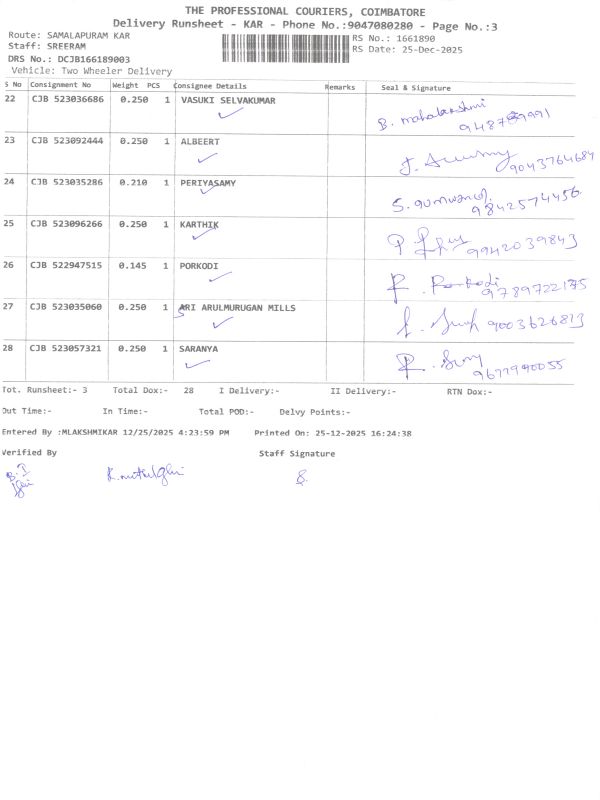 THE PROFESSIONAL COURIERS, COIMBATORE
Delivery Runsheet - KAR - Phone No.:9047080280 - Page No.:3
Route: SAMALAPURAM KAR
RS No.: 1661890
Staff: SREERAM
RS Date: 25-Dec-2025
DRS No.: DCJB166189003
Vehicle: Two Wheeler Delivery
S No Consignment No Weight PCS Consignee Details Remarks Seal & Signature
22 CJB 523036686 0.250 1 VASUKI SELVAKUMAR
B. mahalakshmi
23 CJB 523092444 0.250 1 ALBEERT
9043764684
24 CJB 523035286 0.210 1 PERIYASAMY
9842574456
25 CJB 523096266 0.250 1 KARTHIK
9942039843
26 CJB 522947515 0.145 1 PORKODI
P. Porkodi
9789722175
27 CJB 523035060 0.250 1 SRI ARULMURUGAN MILLS
9003626813
28 CJB 523057321 0.250 1 SARANYA
9677990055
Tot. Runsheet:- 3 Total Dox:- 28 I Delivery:- II Delivery:- RTN Dox:-
Out Time:- In Time:- Total POD:- Delvy Points:-
Entered By :MLAKSHMIKAR 12/25/2025 4:23:59 PM Printed On: 25-12-2025 16:24:38
Verified By Staff Signature